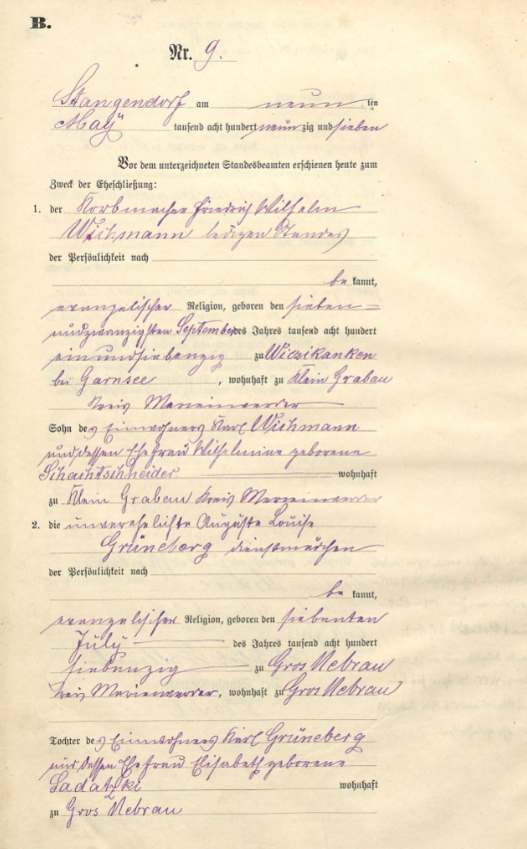 B.
Nr. 9.
Stangendorf am neun ten
May tausend acht hundert neun zig und sieben
Vor dem unterzeichneten Standesbeamten erschienen heute zum
Zweck der Eheschließung:
1. der Korbmacher Friedrich Wilhelm
Wichmann ledigen Standes
der Persönlichkeit nach
be kannt,
evangelischer Religion, geboren den sieben=
undzwanzigsten September des Jahres tausend acht hundert
einundsiebenzig zu
bei Garnsee, wohnhaft zu Klein Grabau
Kreis Marienwerder
Sohn des Einwohners Karl Wichmann
und dessen Ehefrau Wilhelmine geborene
Schachtschneider wohnhaft
zu Klein Grabau Kreis Marienwerder
2. die unverehelichte Auguste Louise
Grüneberg Dienstmädchen
der Persönlichkeit nach
be kannt,
evangelischer Religion, geboren den siebenten
July des Jahres tausend acht hundert
siebenzig zu Gros Nebrau
Kreis Marienwerder, wohnhaft zu Gros Nebrau
Tochter des Einwohners Karl Grüneberg
und dessen Ehefrau Elisabeth geborene
Sadatzki wohnhaft
zu Gros Nebrau